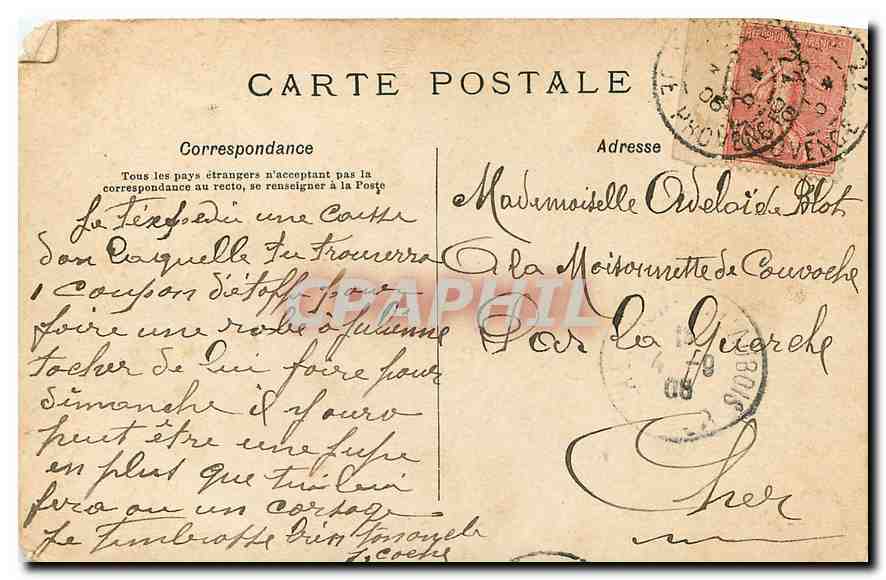 CARTE POSTALE
Correspondance
Tous les pays étrangers n'acceptant pas la
correspondance au recto, se renseigner à la Poste
Je t'éxpédie une caisse
dan laquelle tu trouverra
1 coupon d'étoffe pour
faire une robe à Julienne
tacher de lui faire pour
dimanche il y aura
peut être une jupe
en plus que tu lui
fera ou un corsage
Je t'embrasse bien
Adresse
Mademoiselle Adelaïde Blot
A la Maisonnette de Couvache
Par la Guerche
Cher
CPAPHIL